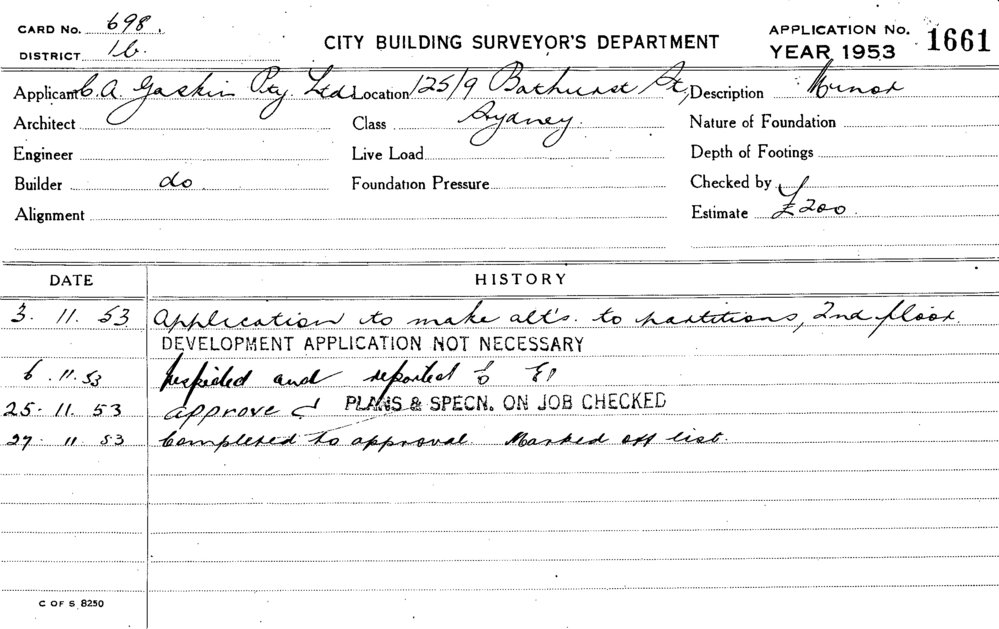 CARD No. 698.
DISTRICT 1b.
CITY BUILDING SURVEYOR'S DEPARTMENT
APPLICATION No. 1661
YEAR 1953
Applicant C.A. Gaskin Pty. Ltd. Location 125/9 Bathurst St, Description Minor
Architect Class Sydney. Nature of Foundation
Engineer Live Load Depth of Footings
Builder do Foundation Pressure Checked by
Alignment Estimate £200
DATE HISTORY
3. 11. 53 Application to make alt's. to partitions, 2nd floor.
DEVELOPMENT APPLICATION NOT NECESSARY
6. 11. 53 Inspected and reported to
25. 11. 53 approved PLANS & SPECN. ON JOB CHECKED
27 11 53 Completed to approval Marked off list.
C OF S 8250